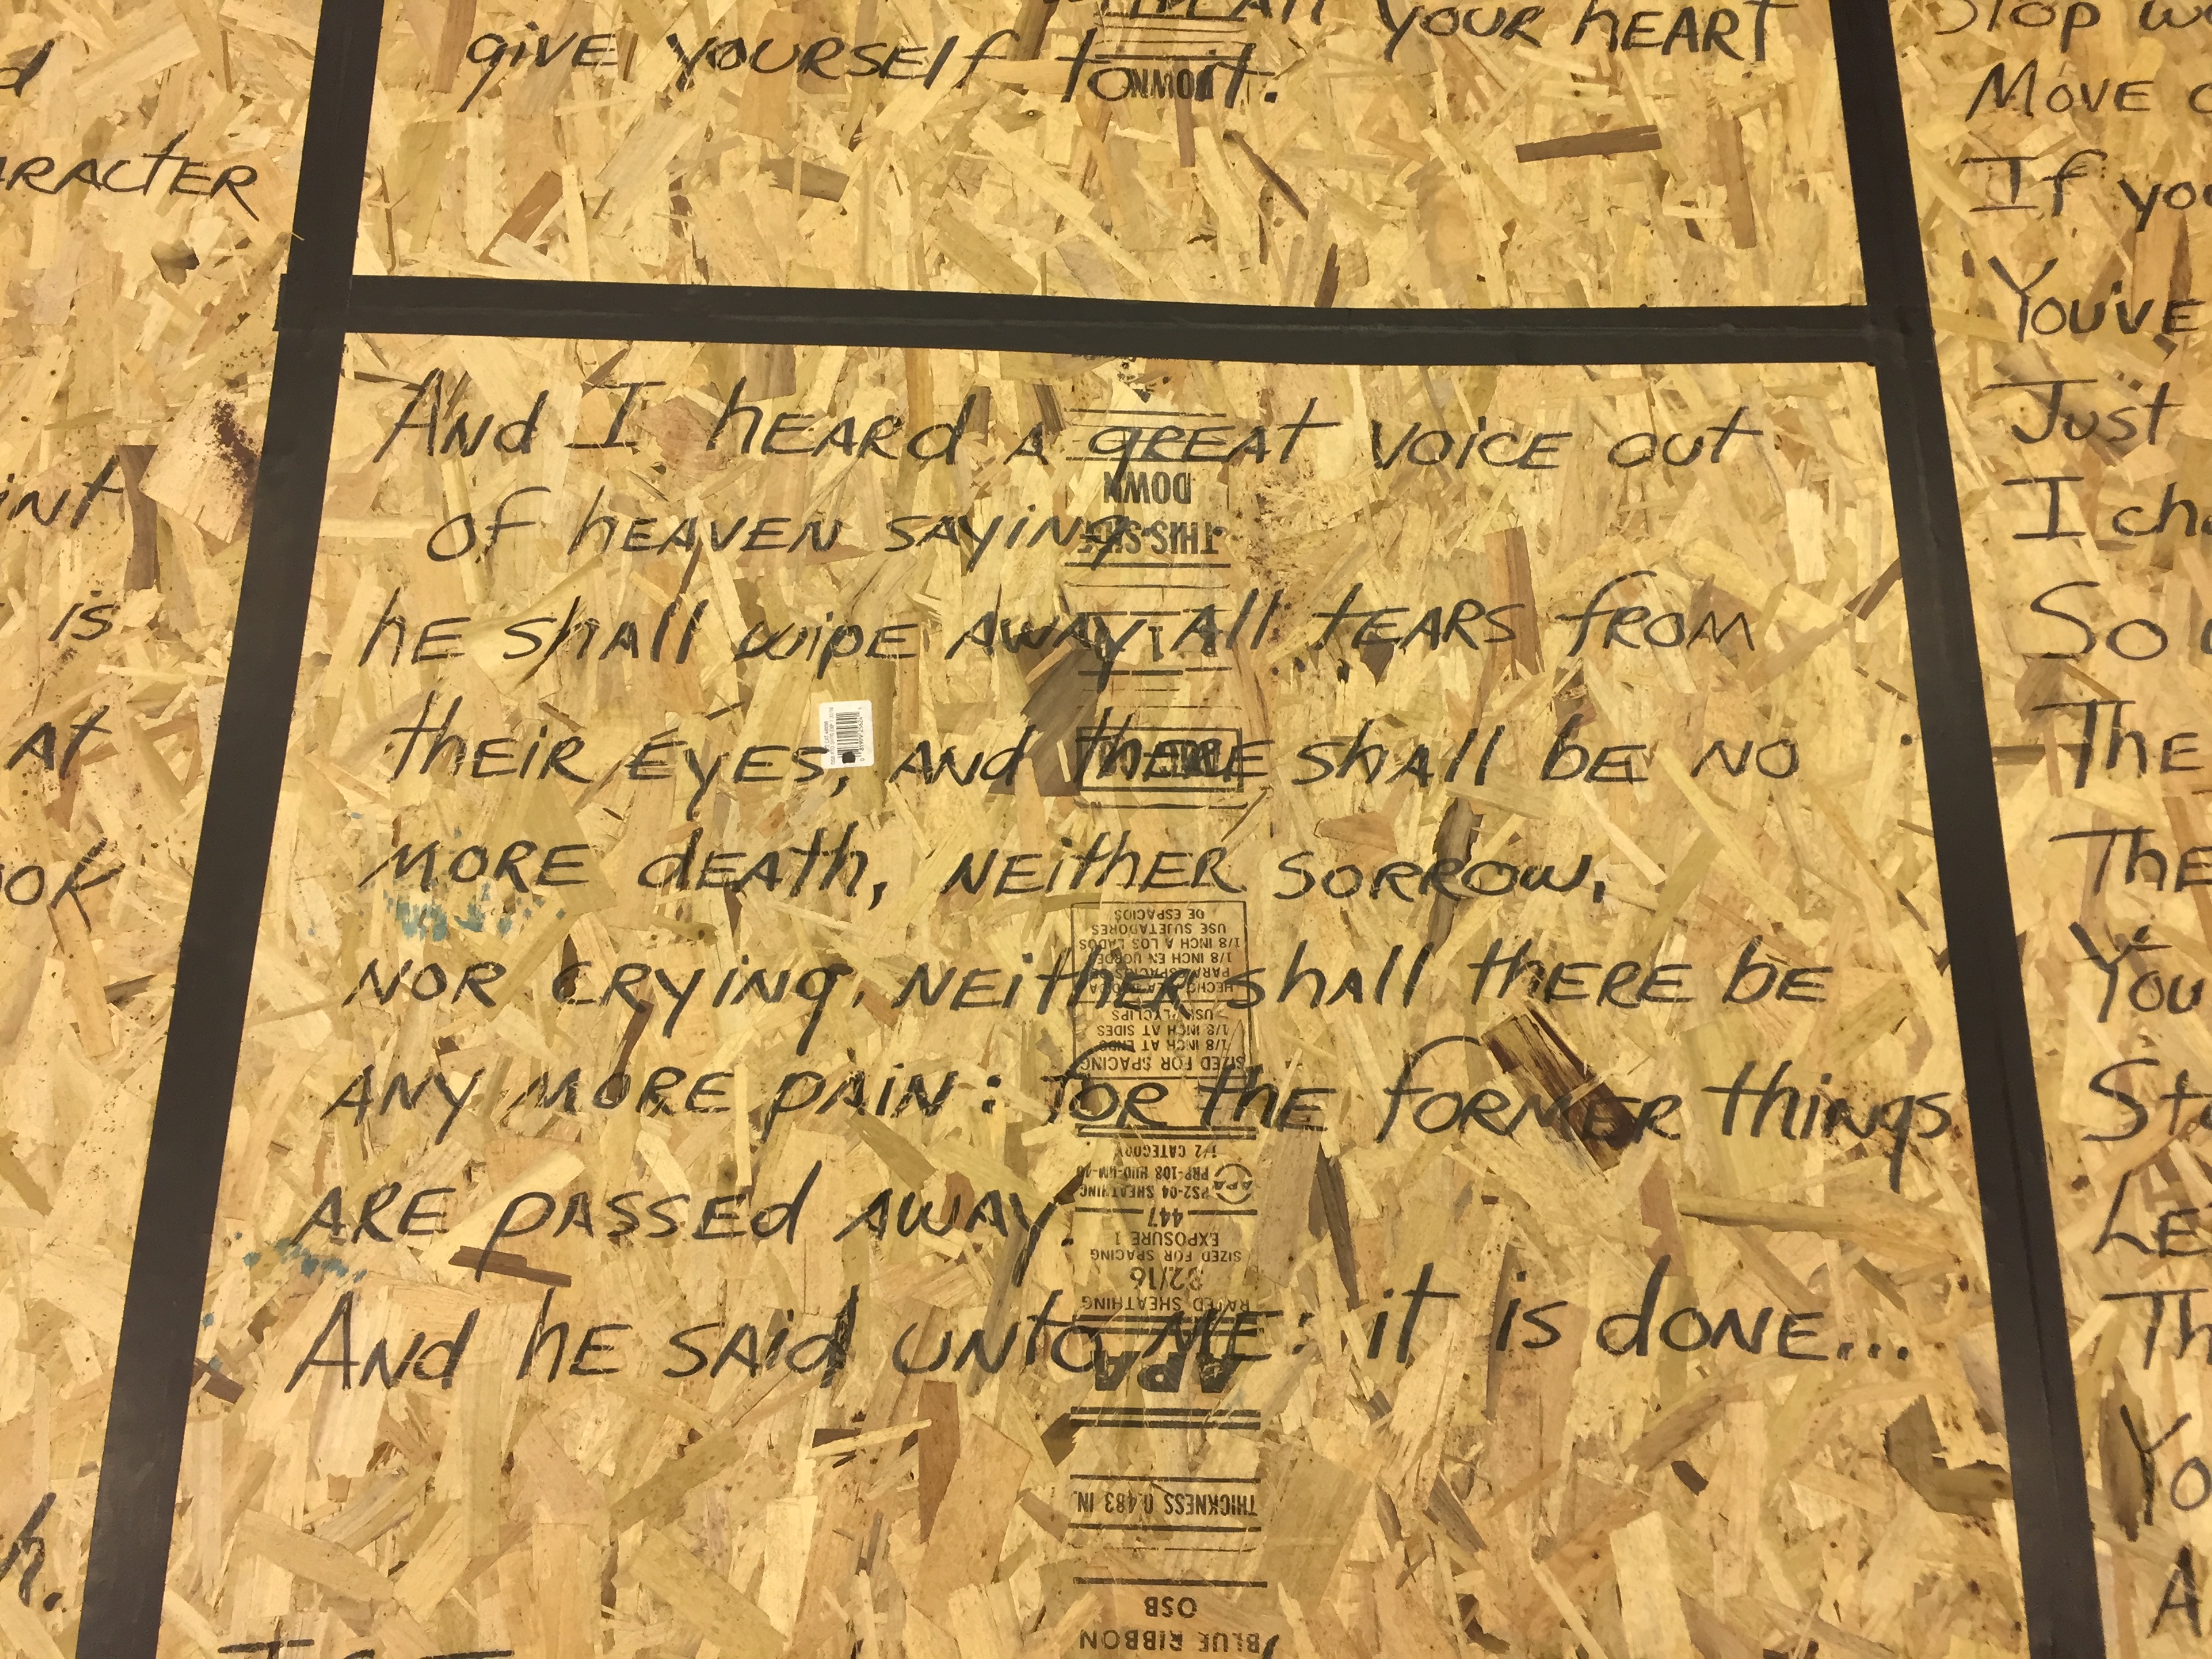 YOUR HEART
give yourself to it.
DOWN
And I heard a great voice out
of heaven saying
he shall wipe away all tears from
their eyes, and there shall be no
more death, neither sorrow,
nor crying, neither shall there be
any more pain: for the former things
are passed away.
And he said unto me: it is done...
DOWN
THIS SIDE
DE ESPACIOS
USE SUJETADORES
1/8 INCH A LOS LADOS
1/8 INCH EN
1/8 INCH AT SIDES
1/8 INCH AT ENDS
SIZED FOR SPACING
1/2 CATEGORY
PRP-108 HUD-UM-40
PS2-04 SHEATHING
APA
447
EXPOSURE 1
SIZED FOR SPACING
32/16
RATED SHEATHING
APA
THICKNESS 0.483 IN.
OSB
BLUE RIBBON
is
at
Stop
Move
If
You've
Just
I
So
The
You